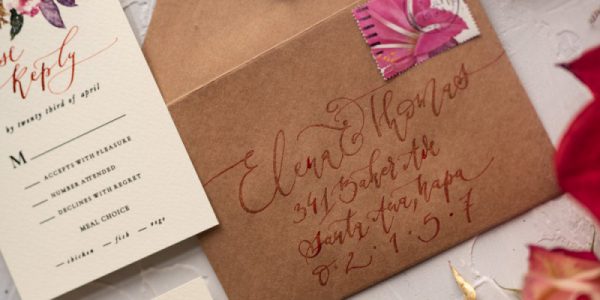 se
Reply
by twenty third of april
M
ACCEPTS WITH PLEASURE
NUMBER ATTENDED
DECLINES WITH REGRET
MEAL CHOICE
chicken / fish / vege
Elena & Thomas
341 Baker Ave
Santa Ana, Napa
0.2.1.5.7